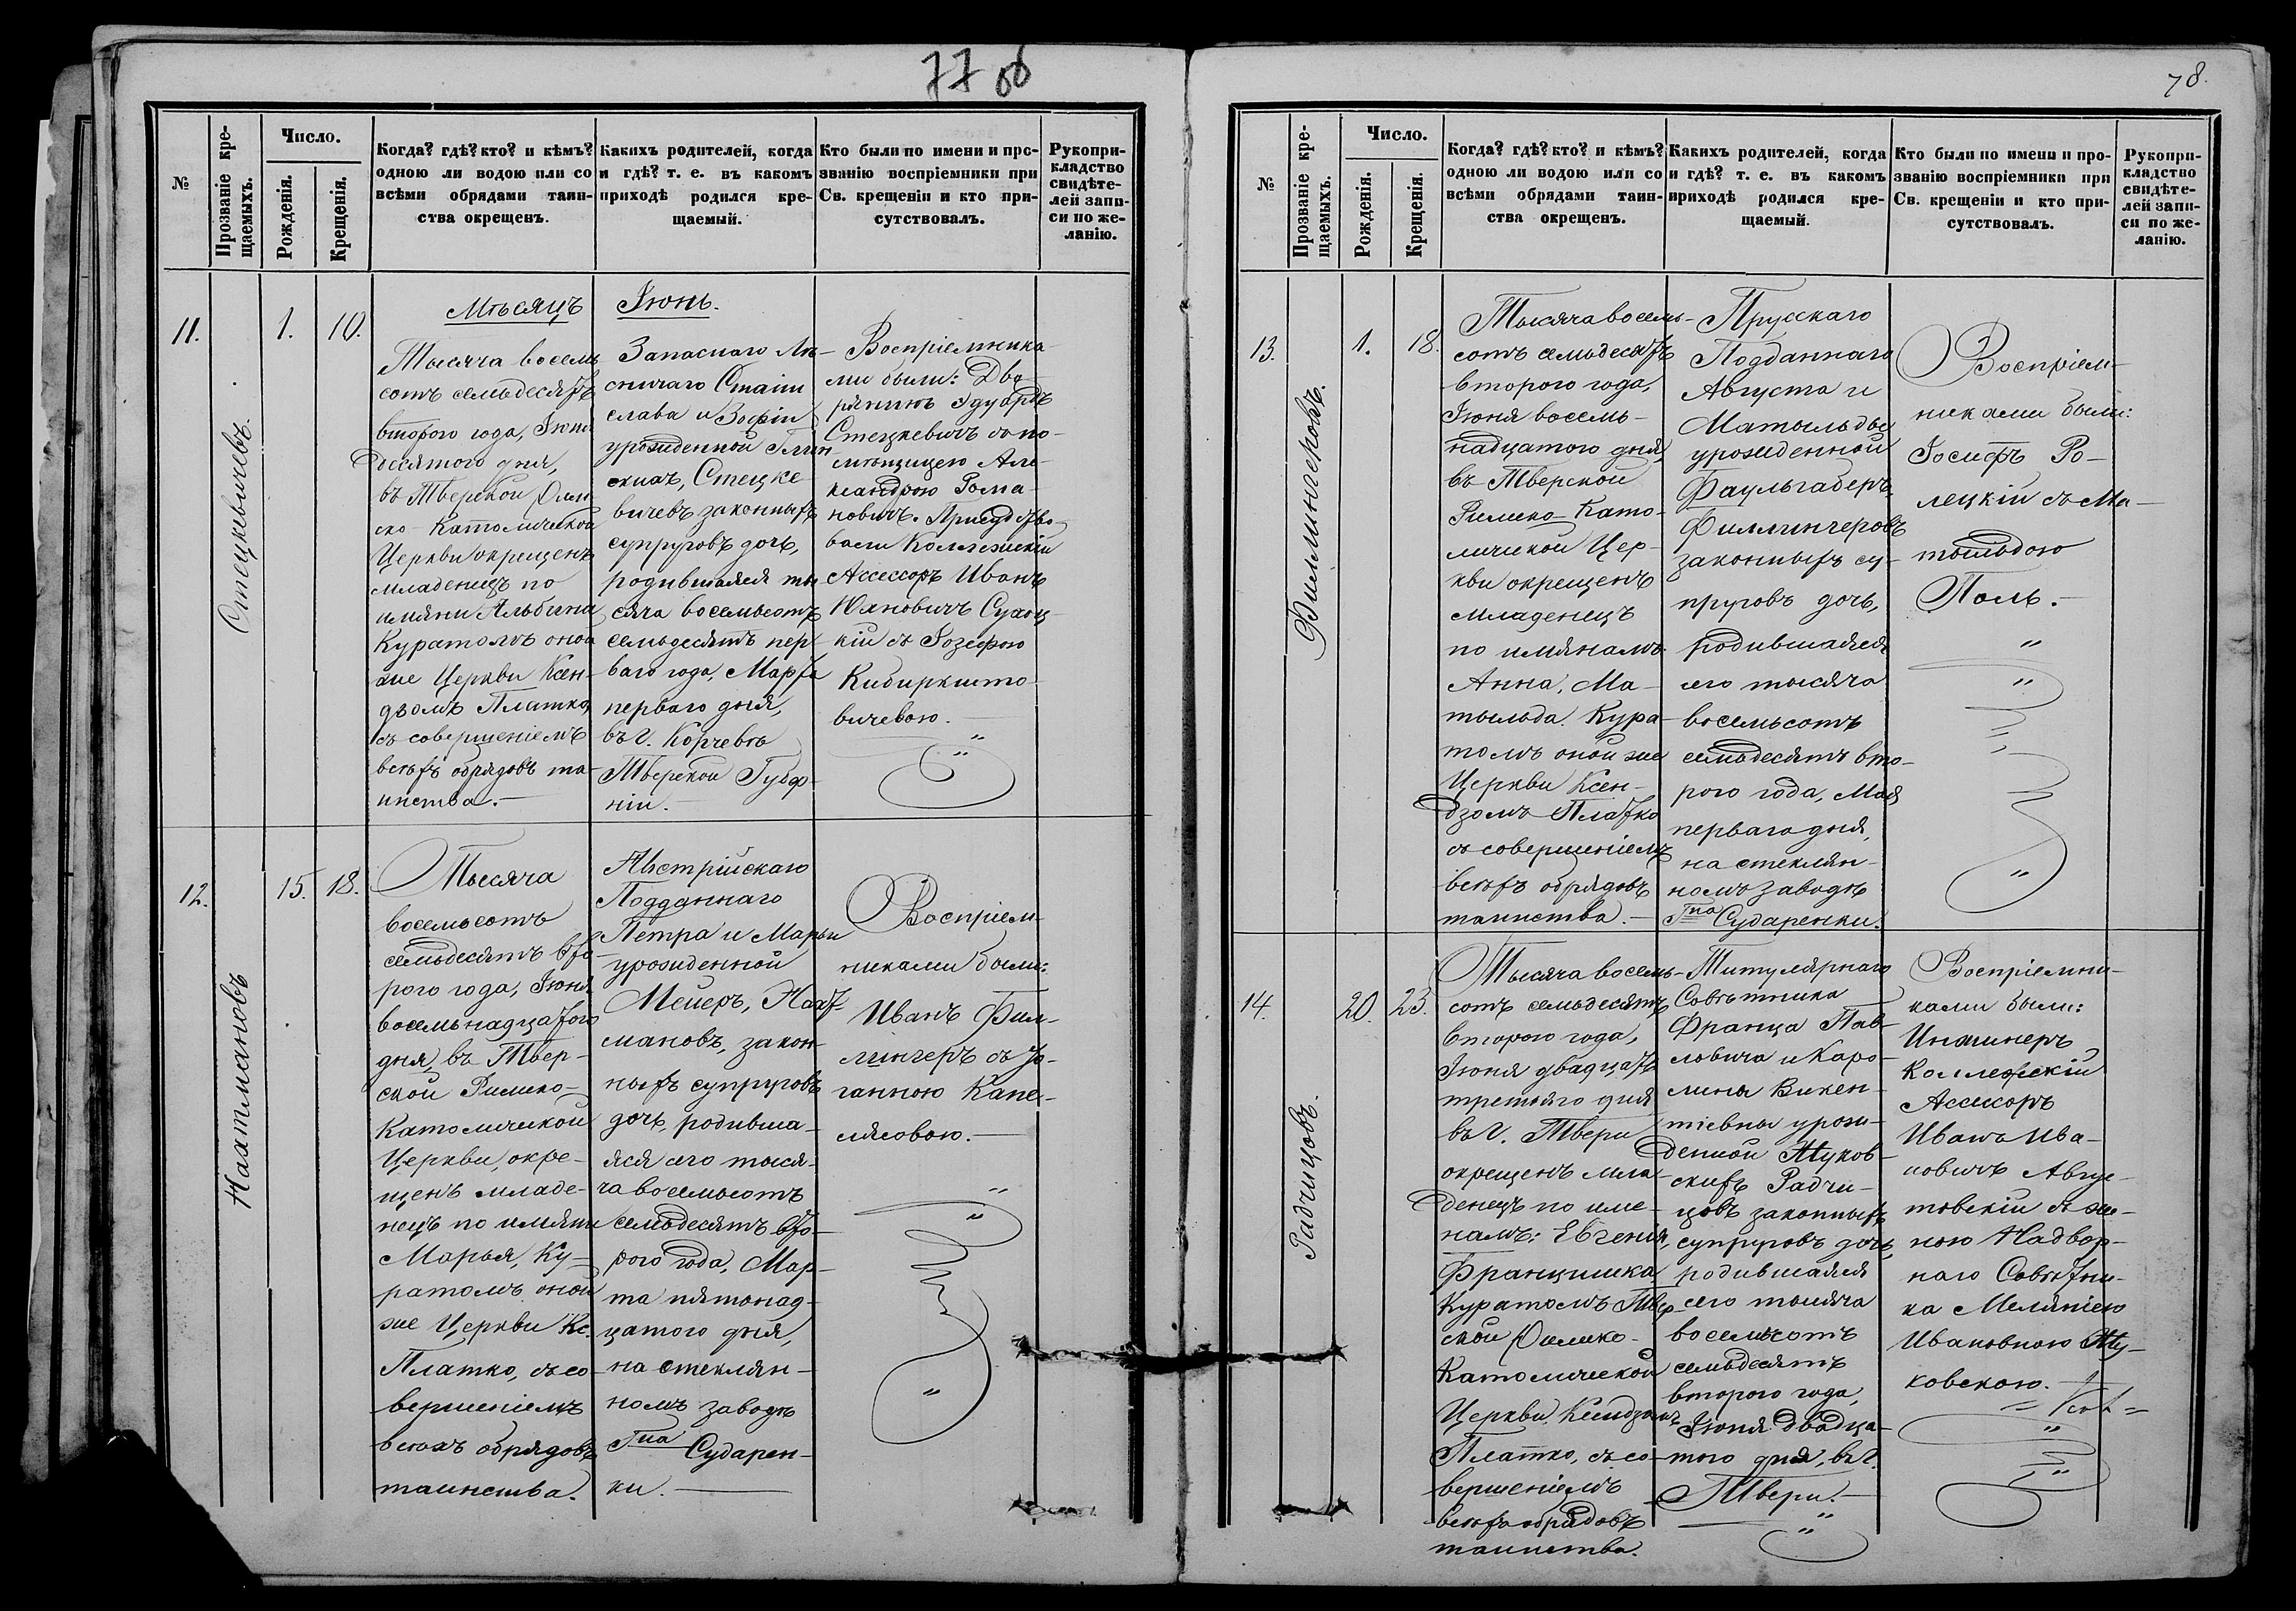 77 об
№
Прозваніе кре-
щаемыхъ.
Число.
Рожденія.
Крещенія.
Когда? гдѣ? кто? и кѣмъ?
одною ли водою или со
всѣми обрядами таин-
ства окрещенъ.
Какихъ родителей, когда
и гдѣ? т. е. въ какомъ
приходѣ родился кре-
щаемый.
Кто были по имени и про-
званію воспріемники при
Св. крещеніи и кто при-
сутствовалъ.
Рукопри-
кладство
свидѣте-
лей запи-
си по же-
ланію.
Мѣсяцъ Іюнь.
11.
Стецкевичевъ.
1.
10.
Тысяча восемь
сотъ семьдесятъ
второго года, Іюня
десятого дня,
въ Тверской Рим
ско-Католической
Церкви окрещенъ
младенецъ по
имяни Альбина
Куратомъ оной
же Церкви Ксен-
дзомъ Платко,
съ совершеніемъ
всѣхъ обрядовъ та-
инства.—
Запаснаго Лѣ-
сничаго Стани
слава и Зофіи
урожденной Глин
скихъ, Стецке
вичевъ законныхъ
супруговъ дочь,
родившаяся ты
сяча восемьсотъ
семьдесятъ пер
ваго года, Марта
перваго дня,
въ г. Корчевѣ
Тверской Губер-
ніи.—
Воспріемника-
ми были: Дво-
рянинъ Эдуардъ
Стецкевичъ съ по-
мѣщицею Але-
ксандрою Рома-
новичъ. Присудство-
вали Коллежскій
Ассессоръ Иванъ
Юхновичъ Сухоц-
кій съ Іозефою
Кибиркшто-
вичевою.—
12.
Наатмановъ
15.
18.
Тысяча
восемьсотъ
семьдесятъ вто-
рого года, Іюня
восемьнадцатого
дня, въ Твер-
ской Римско-
Католической
Церкви, окре-
щенъ младе-
нецъ по имяни
Марья, Ку-
ратомъ оной
же Церкви Кс.
Платко, съ со-
вершеніемъ
всѣхъ обрядовъ
таинства.
Австрійскаго
Подданнаго
Петра и Марьи
урожденной
Мейеръ, Наат-
мановъ, закон-
ныхъ супруговъ
дочь, родивша-
яся сего тыся-
ча восемьсотъ
семьдесятъ вто-
рого года, Мар-
та пятонад-
цатого дня,
на стеклян-
номъ заводѣ
Гна Сударен-
ки.—
Воспріем-
никами были:
Иванъ Фил-
лингеръ съ Іо-
ганною Капе-
лясовою.—
78.
№
Прозваніе кре-
щаемыхъ.
Число.
Рожденія.
Крещенія.
Когда? гдѣ? кто? и кѣмъ?
одною ли водою или со
всѣми обрядами таин-
ства окрещенъ.
Какихъ родителей, когда
и гдѣ? т. е. въ какомъ
приходѣ родился кре-
щаемый.
Кто были по имени и про-
званію воспріемники при
Св. крещеніи и кто при-
сутствовалъ.
Рукопри-
кладство
свидѣте-
лей запи-
си по же-
ланію.
13.
Филлингеровъ.
1.
18.
Тысяча восемь-
сотъ семьдесятъ
второго года,
Іюня восемь-
надцатого дня,
въ Тверской
Римско-Като-
лической Цер-
кви окрещенъ
младенецъ
по имянамъ
Анна, Ма-
тыльда. Кура-
томъ оной же
Церкви Ксен-
дзомъ Платко
съ совершеніемъ
всѣхъ обрядовъ
таинства.—
Прусскаго
Подданнаго
Августа и
Матыльды
урожденной
Фаульгаберъ
Филлингеровъ
законныхъ су-
пруговъ дочь,
родившаяся
сего тысяча
восемьсотъ
семьдесятъ вто-
рого года, Мая
перваго дня,
на стеклян-
номъ заводѣ
Гна Сударенки.
Воспріем-
никами были:
Іосифъ Ро-
лецкій съ Ма-
тыльдою
Поль.—
14.
Радчицовъ.
20.
23.
Тысяча восемь-
сотъ семьдесятъ
второго года,
Іюня двадцать
третьяго дня
въ г. Твери
окрещенъ мла-
денецъ по име-
намъ: Евгенія,
Францишка
Куратомъ Твер-
ской Римско-
Католической
Церкви Ксендзомъ
Платко, съ со-
вершеніемъ
всѣхъ обрядовъ
таинства.
Титулярнаго
Совѣтника
Франца Пав-
ловича и Каро-
лины Викен-
тіевны урож-
денной Жуков-
скихъ Радчи-
цовъ законныхъ
супруговъ дочь,
родившаяся
сего тысяча
восемьсотъ
семьдесятъ
второго года,
Іюня двадца-
того дня, въ г.
Твери.—
Воспріемни-
ками были:
Инжинеръ
Коллежскій
Асессоръ
Иванъ Ива-
новичъ Авгус-
товскій съ же-
ною Надвор-
наго Совѣтни-
ка Меляніею
Ивановною Жу-
ковскою.—